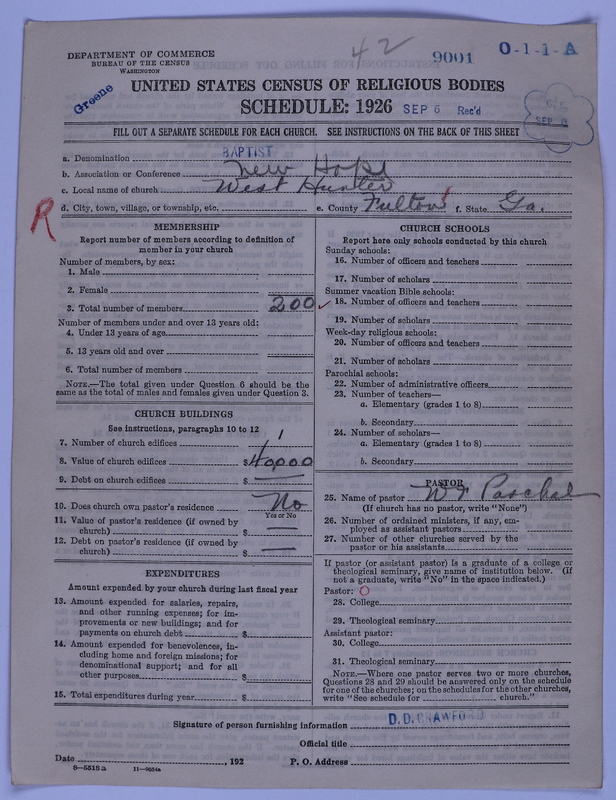 42
9001
O-1-1-A
DEPARTMENT OF COMMERCE
BUREAU OF THE CENSUS
WASHINGTON
Greene
UNITED STATES CENSUS OF RELIGIOUS BODIES
SCHEDULE: 1926 SEP 6 Rec'd
FILL OUT A SEPARATE SCHEDULE FOR EACH CHURCH. SEE INSTRUCTIONS ON THE BACK OF THIS SHEET
a. Denomination BAPTIST
b. Association or Conference New Hope
c. Local name of church West Hunter
d. City, town, village, or township, etc. e. County Fulton f. State Ga.
R
MEMBERSHIP
Report number of members according to definition of
member in your church
Number of members, by sex:
1. Male
2. Female
3. Total number of members 200
Number of members under and over 13 years old:
4. Under 13 years of age
5. 13 years old and over
6. Total number of members
NOTE.—The total given under Question 6 should be
same as the total of males and females given under Question 3.
CHURCH BUILDINGS
See instructions, paragraphs 10 to 12
7. Number of church edifices 1
8. Value of church edifices $40000
9. Debt on church edifices $
10. Does church own pastor's residence No
Yes or No
11. Value of pastor's residence (if owned by
church) $
12. Debt on pastor's residence (if owned by
church) $
EXPENDITURES
Amount expended by your church during last fiscal year
13. Amount expended for salaries, repairs,
and other running expenses; for im-
provements or new buildings; and for
payments on church debt $
14. Amount expended for benevolences, in-
cluding home and foreign missions; for
denominational support; and for all
other purposes $
15. Total expenditures during year $
CHURCH SCHOOLS
Report here only schools conducted by this church
Sunday schools:
16. Number of officers and teachers
17. Number of scholars
Summer vacation Bible schools:
18. Number of officers and teachers
19. Number of scholars
Week-day religious schools:
20. Number of officers and teachers
21. Number of scholars
Parochial schools:
22. Number of administrative officers
23. Number of teachers—
a. Elementary (grades 1 to 8)
b. Secondary
24. Number of scholars—
a. Elementary (grades 1 to 8)
b. Secondary
PASTOR
25. Name of pastor Paschal
(If church has no pastor, write "None")
26. Number of ordained ministers, if any, em-
ployed as assistant pastors
27. Number of other churches served by the
pastor or his assistants
If pastor (or assistant pastor) is a graduate of a college or
theological seminary, give name of institution below. (If
not a graduate, write "No" in the space indicated.)
Pastor:
28. College
29. Theological seminary
Assistant pastor:
30. College
31. Theological seminary
NOTE.—Where one pastor serves two or more churches,
Questions 28 and 29 should be answered only on the schedule
for one of the churches; on the schedules for the other churches,
write "See schedule for church."
Signature of person furnishing information D. D. CRAWFORD
Official title
Date , 192 P. O. Address
8—5518a 11—9034a